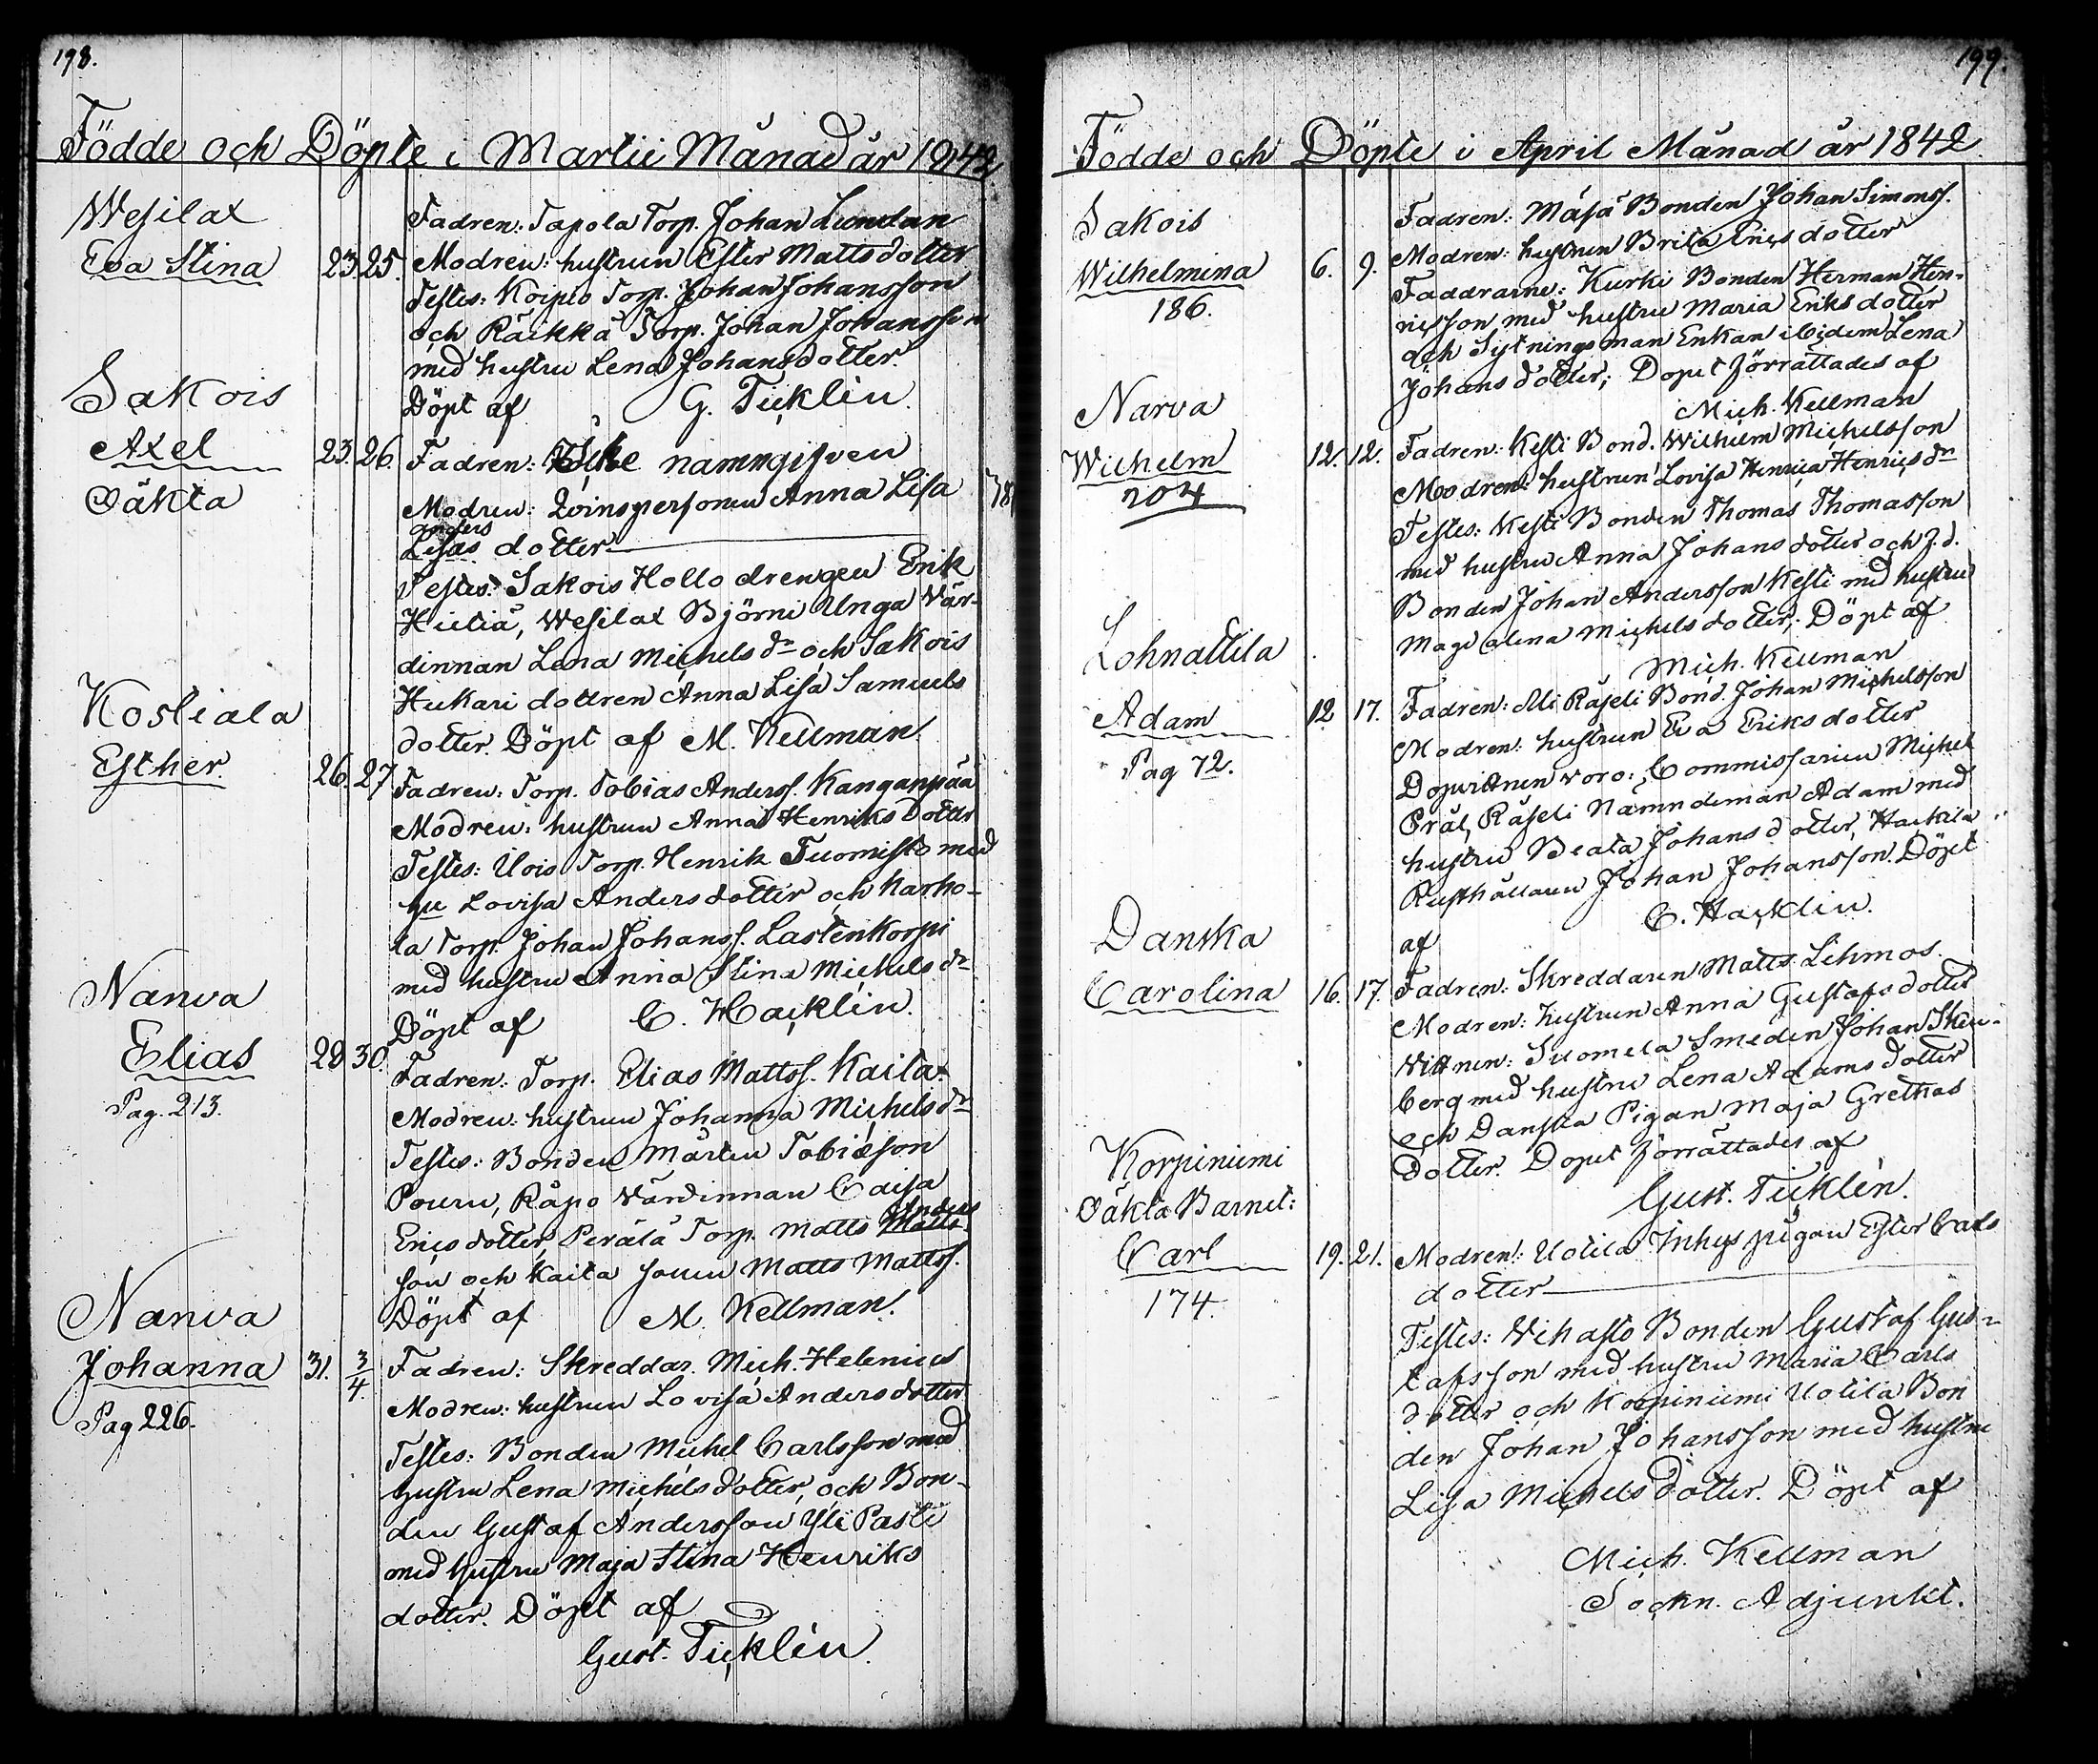 198.
Födde och Döpte i Martii Månad år 1842.
Wesilax
Eva Stina 23. 25.
Fadren: Tapola Torp. Johan Lundan
Modren: hustrun Ester Mattsdotter
Testes: Koipio Torp. Johan Johansson
och Räikkä Torp. Johan Johansson
med hustru Lena Johansdotter.
Döpt af G. Ticklén.
Sakois
Axel 23. 26.
Oäkta
Fadren: Icke namngifven
Modren: Qvinspersonen Anna Lisa
Anders
Lisas dotter
Testes: Sakois Hollo drengen Erik
Hietiä, Wesilax Björni Unga Vär-
dinnan Lena Michels dr och Sakois
Hukari dottren Anna Lisa Samuels
dotter. Döpt af M. Kellman.
Kostiala
Esther 26. 27
Fadren: Torp. Tobias Anderss. Kanganpää
Modren: hustrun Anna Henriks dotter
Testes: Uois Torp. Henrik Tuomisto med
hu Lovisa Andersdotter och Karho-
la Torp. Johan Johanss. Lastenkorpi
med hustru Anna Stina Michels dr
Döpt af C. Hacklin.
Narva
Elias 28 30.
Pag. 213.
Fadren: Torp. Elias Mattss. Kaila.
Modren: hustrun Johanna Michels dr
Testes: Bonden Mårten Tobiesson
Pouru, Räpo Värdinnan Caisa
Ericsdotter, Perälä Torp. Matts Matts
Anders
son och Kaila sonen Matts Mattss.
Döpt af M. Kellman.
Narva
Johanna 31. 3/4.
Pag 226.
Fadren: Skreddar. Mich. Helenius
Modren: hustrun Lovisa Andersdotter
Testes: Bonden Michel Carlsson med
hustru Lena Michelsdotter, och Bon-
den Gustaf Andersson Yli Pasti
med hustru Maja Stina Henriks
dotter. Döpt af
Gust. Ticklén.
199.
Födde och Döpte i April Månad år 1842.
Sakois
Wilhelmina 6. 9.
186.
Fadren: Mäsä Bonden Johan Simonss.
Modren: hustrun Brita Ericsdotter
Faddrarne: Kurki Bonden Herman Hen-
ricsson med hustru Maria Eriksdotter
och Sytningsman Enkan ibidem Lena
Johansdotter; Dopet förrättades af
Mich. Kellman
Narva
Wilhelm 12. 12.
204
Fadren: Kesti Bond. Wilhelm Michelsson
Modren: hustrun Lovisa Henrica Henrics dr
Testes: Kesti Bonden Thomas Thomasson
med hustru Anna Johansdotter och f.d.
Bonden Johan Andersson Kesti med hustru
Magdalena Michelsdotter; Döpt af
Mich. Kellman
Lohnattila
Adam 12 17.
Pag 72.
Fadren: Ali Räseli Bond. Johan Michelsson
Modren: hustrun Eva Eriksdotter
Dopvittnen voro: Commissarien Michel
Orål, Räseli Nämndeman Adam med
hustru Beata Johansdotter, Hakila
Rusthållaren Johan Johansson. Döpt
af C. Hacklin.
Danska
Carolina 16. 17.
Fadren: Skreddaren Matts Lihmos.
Modren: hustrun Anna Gustafsdotter
Vittnen: Suomela Smeden Johan Sken-
berg med hustru Lena Adamsdotter
och Danska Pigan Maja Grethas
dotter. Dopet förrättades af
Gust. Ticklén.
Korpiniemi
Oäkta Barnet:
Carl 19. 21.
174.
Modren: Uotila Inhys pigan Ester Carls
dotter
Testes: Vihasto Bonden Gustaf Gus-
tafsson med hustru Maria Carls
dotter och Korpiniemi Uotila Bon
den Johan Johansson med hustru
Lisa Michelsdotter. Döpt af
Mich. Kellman
Sockn. Adjunkt.